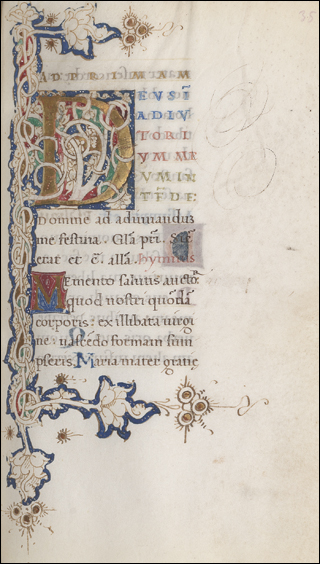 35
AD PRIMAM
DEVS Ī
ADIV
TORI
VM ME
VM IN
TĒDE:
Domine ad adiuuandū
me festina. Glā pr̄i. Sic̄
erat et c̄. allā. hymnus
Memento salutis auctoꝛ
quod nostri quōdā
corporis: ex illibata uirgi
ne: nascēdo formam sum
pseris. Maria mater gratię